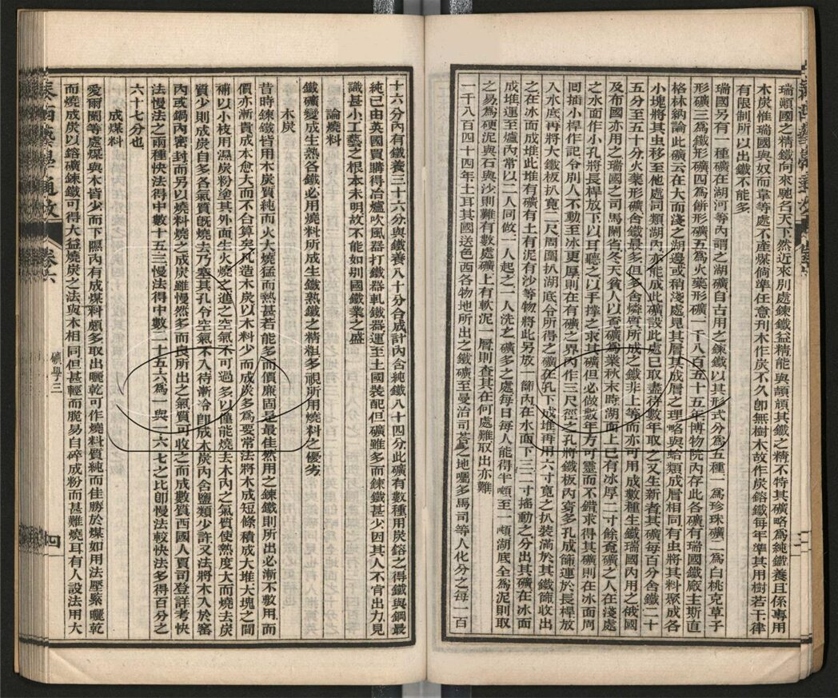 瑞頓國之精鐵向來馳名天下然近來別處鍊鐵益精能與頓其鐵之精不特其礦略為純鐵養且係專用
木炭惟瑞國與奴而韋等處不產煤倘準任意刋木作炭不久卽無樹木故作炭鎔鐵每年準其用樹若干律
有限制所以出鐵不能多
瑞國另有一種礦在湖河等內謂之湖礦自古用之鍊鐵以其形式分為五種一為珍珠礦二為白桃克草子
形礦三為鐵形礦四為餅形礦五為火藥形礦一千八百五十五年博物院內存此各礦有瑞國鐵廠主斯直
格林納論此礦云在大而淺之湖邊或稍淺處見其層其成層之理略與蛤類成層相同有虫將其料聚成各
小塊將其虫移至他處同類湖內亦能成此礦設此處已取盡待數年取之又生新者其礦每百分含鐵二十
五分至五十分火藥形礦含鐵最多但多含燐質所成之鐵非上等而亦可用成數種生鐵瑞國內用之俄國
及布國亦用之瑞國之司馬蘭省冬天貧人以查礦為業秋末時湖面上已有冰厚二寸餘覓礦之人在淺處
之水面作小孔將長桿放下以耳聽之以手撐之求其礦但必做數年方可靈而不錯求得其礦則在冰面周
圍插小桿作記令別人不動至冰更厚則在有礦之界內作三尺徑之孔將鐵板內穿多孔成篩連於長桿放
入水底再將小鐵板扒寬二尺周圍扒湖底令所得之礦在孔下成堆再用六寸寬之扒裝滿於其鐵篩收出
之在冰面成堆此堆有礦有土有泥有沙等物將此另放一篩內在水面下三二寸搖動之分出其礦在冰面
成堆運至爐內常以二人同做一人起之一人洗之礦多之處每日每人能得半頓至一頓湖底全為泥則取
之易為硬泥與石與沙則難有數處礦上有軟泥一層則查其在何處難取出亦難
一千八百四十四年土耳其國送色西各物地所出之鐵礦至曼治司苔為之地囑多馬司等人化分之每一百
十六分內有鐵養三十六分與鐵養八十分合成計內含純鐵八十四分此礦有數種用炭鎔之得鐵與鋼最
純已由英國買購得冶爐吹風器打鐵器軋鐵器運至土國裝配但礦雖多而鍊鐵甚少因其人不肯出力見
識甚小工藝之根本未明故不能如別國鐵業之盛
論燒料
鐵礦變成生熟各鐵必用燒料所成生鐵熟鐵之精粗多視所用燒料之優劣
木炭
昔時鍊鐵皆用木炭質純而火大燒猛而熱甚若能多而價廉固是最佳然用之鍊鐵則所出必漸不敷用而
價亦漸貴成本愈大而不合算矣凡造木炭以木料少而成炭多為要常法將木成短條積成大堆大塊之間
補以小枝用濕炭粉蓋其外面生火燒之進之空氣不可過多以僅能燒去木內之氣質使熱度大而燒去炭
質少則成炭自多各氣質旣燒去乃塞其孔令空氣不入待漸冷卽成木炭內含鹽類少許又法將木入於窰
內或鍋內密封而另以燒料燒之成炭雖慢然多而良所出之氣質可收之而成數質西國人賈司登詳考快
法慢法之兩種快法得中數十五三慢法得中數二十五六為一與一六七之比卽慢法較快法多得百分之
六十七分也
成煤料
愛爾蘭等處煤與木皆少而下隰內有成煤料頗多取出曬乾可作燒料質純而佳勝於煤如用法壓緊曬乾
而燒成炭以鎔礦鍊鐵可得大益燒炭之法與木相同但甚輕而脆易自碎成粉而甚難燒耳有人設法用大
卷六
礦學三
四